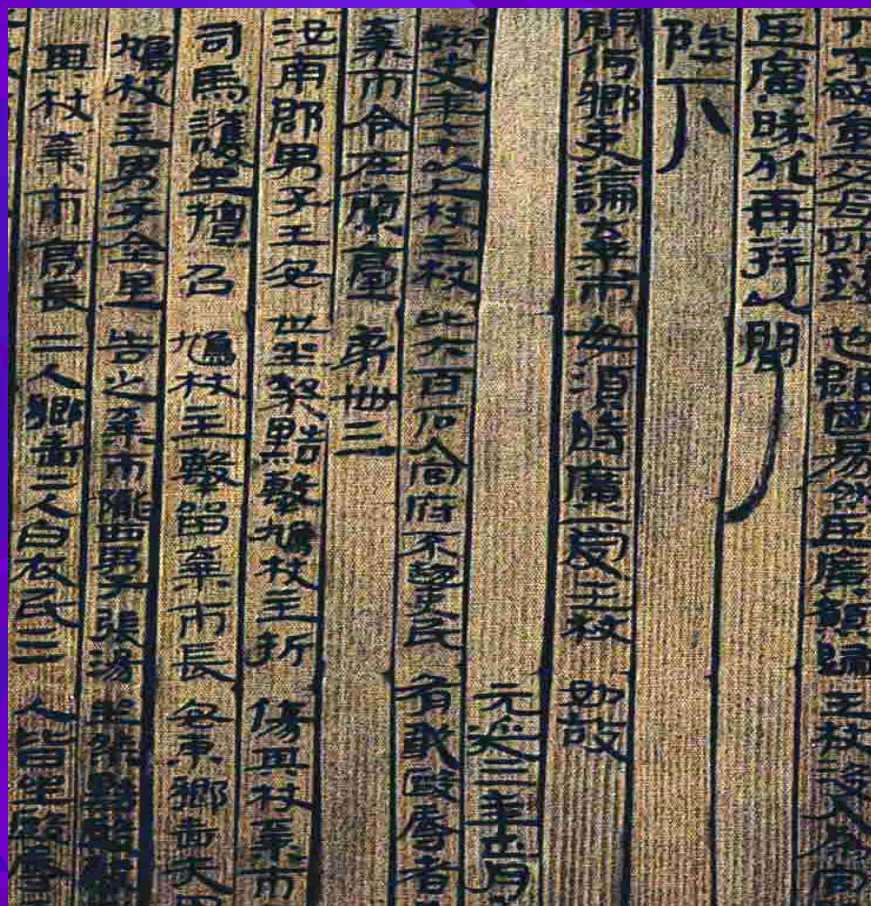 不敬重父母所致也郡國易然臣廣願歸王杖沒入為官
臣廣昧死再拜以聞
陛下
問何鄉吏論棄市毋須時廣受王杖如故
元延三年正月
年七十以上杖王杖比六百石入官府不趨吏民有敢毆辱者
棄市令在蘭臺第卌三
汝南郡男子王安世坐桀黠擊鳩杖主折傷其杖棄市
司馬護坐擅召鳩杖主擊留棄市長安東鄉嗇夫田
鳩杖主男子金里告之棄市隴西男子張湯坐桀黠毆擊
其杖棄市亭長二人鄉嗇二人白衣民三人皆坐毆辱